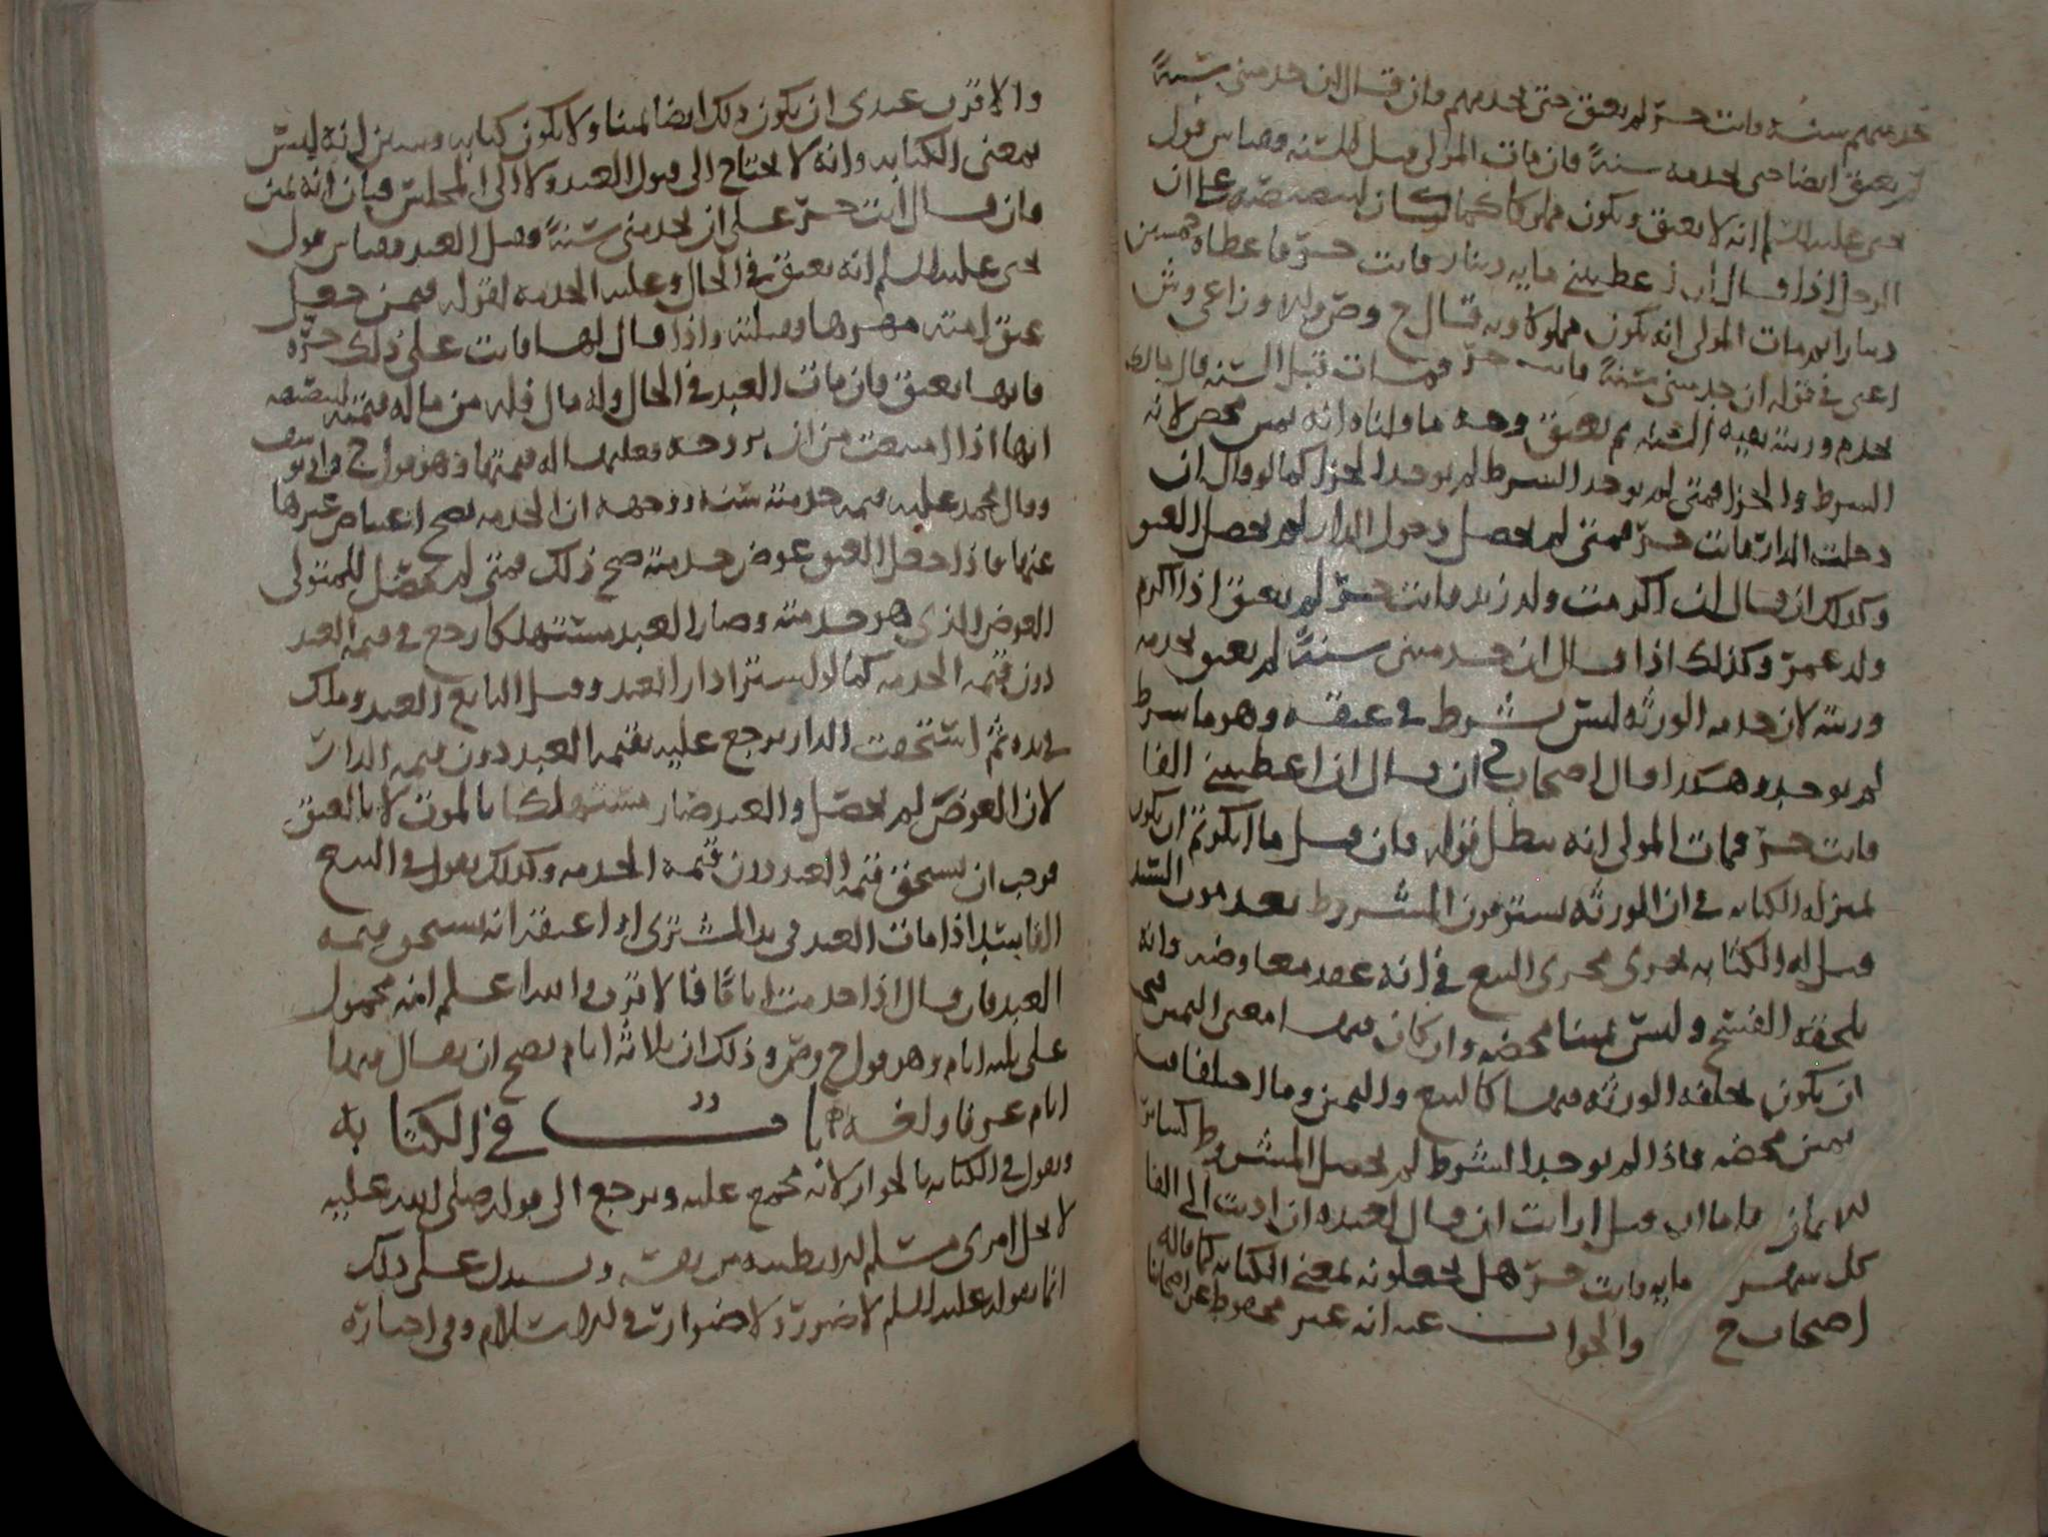 تخدمهم سنة وانت حر لم يعتق حتى يخدمهم فان قال ان خدمتني سنة
لم يعتق ايضا حتى يخدمه سنة فان مات المولى قبل السنة وقياس قول
يحيى عليه السلم انه لا يعتق ويكون مملوكا كما كان لتنصيصه على ان
الرجل اذا قال ان اعطيتني مايه دينار فانت حر فاعطاه خمسين
دينارا ثم مات المولى انه يكون مملوكا وبه قال ح وص
اعنى في قوله ان خدمتني سنة فانت حر فمات قبل السنة قال مالك
يخدم ورثته بقية السنة ثم يعتق وجه ما قلناه انه يمين محض لانه
الشرط والجزا فمتى لم يوجد الشرط لم يوجد الجزا كما لو قال ان
دخلت الدار فانت حر فمتى لم يحصل دخول الدار لم يحصل العتق
وكذلك ان قال ان اكرمت ولد زيد فانت حر لم يعتق اذا اكرم
ولد عمرو وكذلك اذا قال ان خدمتني سنة لم يعتق بخدمه
ورثته لان خدمه الورثه ليس بشرط في عتقه وهو ما شرط
لم يوجد وهكذا قال اصحاب ح ان قال ان اعطيتني الفا
فانت حر فمات المولى انه يبطل قوله فان قيل ما انكرتم ان يكون
بمنزله الكتابه في ان الورثه يستوفون المشروط بعد موت السيد
قيل له الكتابه تجرى مجرى البيع في انه عقد معاوضه وانه
يلحقه الفسخ وليس يمينا محضه وان كان فيها معنى اليمين فصح
ان يكون تخلفه الورثه فيها كالبيع واليمين وما اختلفا فيه
يمين محضه فاذا لم يوجد الشرط لم يحصل المشروط كساير
الايمان فاما ان قيل ارايت ان قال لعبده ان اديت الي الفا
كل شهر مايه فانت حر هل تجعلونه بمعنى الكتابه كما قاله
اصحاب ح والجواب عنه انه غير محفوظ عن اصحابنا
والاقرب عندى ان يكون ذلك ايضا يمينا ولا يكون كتابه وسبين انه ليس
بمعنى الكتابه وانه لا يحتاج الى قبول العبد ولا الى المجلس فبان انه يمين
فان قال انت حر على ان تخدمني سنة وقبل العبد وقياس قول
يحيى عليه السلم انه يعتق في الحال وعليه الخدمه لقوله فيمن جعل
عتق امته مهرها وقبلته واذا قال لها فانت على ذلك حره
فانها تعتق فان مات العبد في الحال وله مال فله من ماله قيمته لتنصيصه
انها اذا امتنعت من ان يزوجه فعليها له قيمتها وهو قول ح وابو يوسف
وقال محمد عليه قيمه خدمته سنة ووجهه ان الخدمه يصح اعتياض غيرها
عنها فاذا جعل العتق عوض خدمته صح ذلك فمتى لم يحصل للمولى
العوض الذى هو خدمته وصار العبد مستهلكا رجع في قيمه العبد
دون قيمه الخدمه كما لو اشترا دارا بعبد وقبل البايع العبد وهلك
في يده ثم استحقت الدار يرجع عليه بقيمه العبد دون قيمه الدار
لان العوض لم يحصل والعبد صار مستهلكا بالموت لا بالعتق
فوجب ان يستحق قيمه العبد دون قيمه الخدمه وكذلك نقول في البيع
الفاسد اذا مات العبد في يد المشترى او اعتقه انه يستحق قيمه
العبد فان قال اذا خدمت اياما فالاقرب والله اعلم انه محمول
على ثلثه ايام وهو قول ح وص وذلك ان ثلاثه ايام يصح ان يقال فيها
ايام عرفا ولغه باب في الكتابه
ونقول في الكتابه بالجواز لانه مجمع عليه ويرجع الى قوله صلى الله عليه
لا يحل مال امرئ مسلم الا بطيبه من نفسه ويستدل على ذلك
ايضا بقوله عليه السلم لا ضرر ولا ضرار في الاسلام وفي اجباره